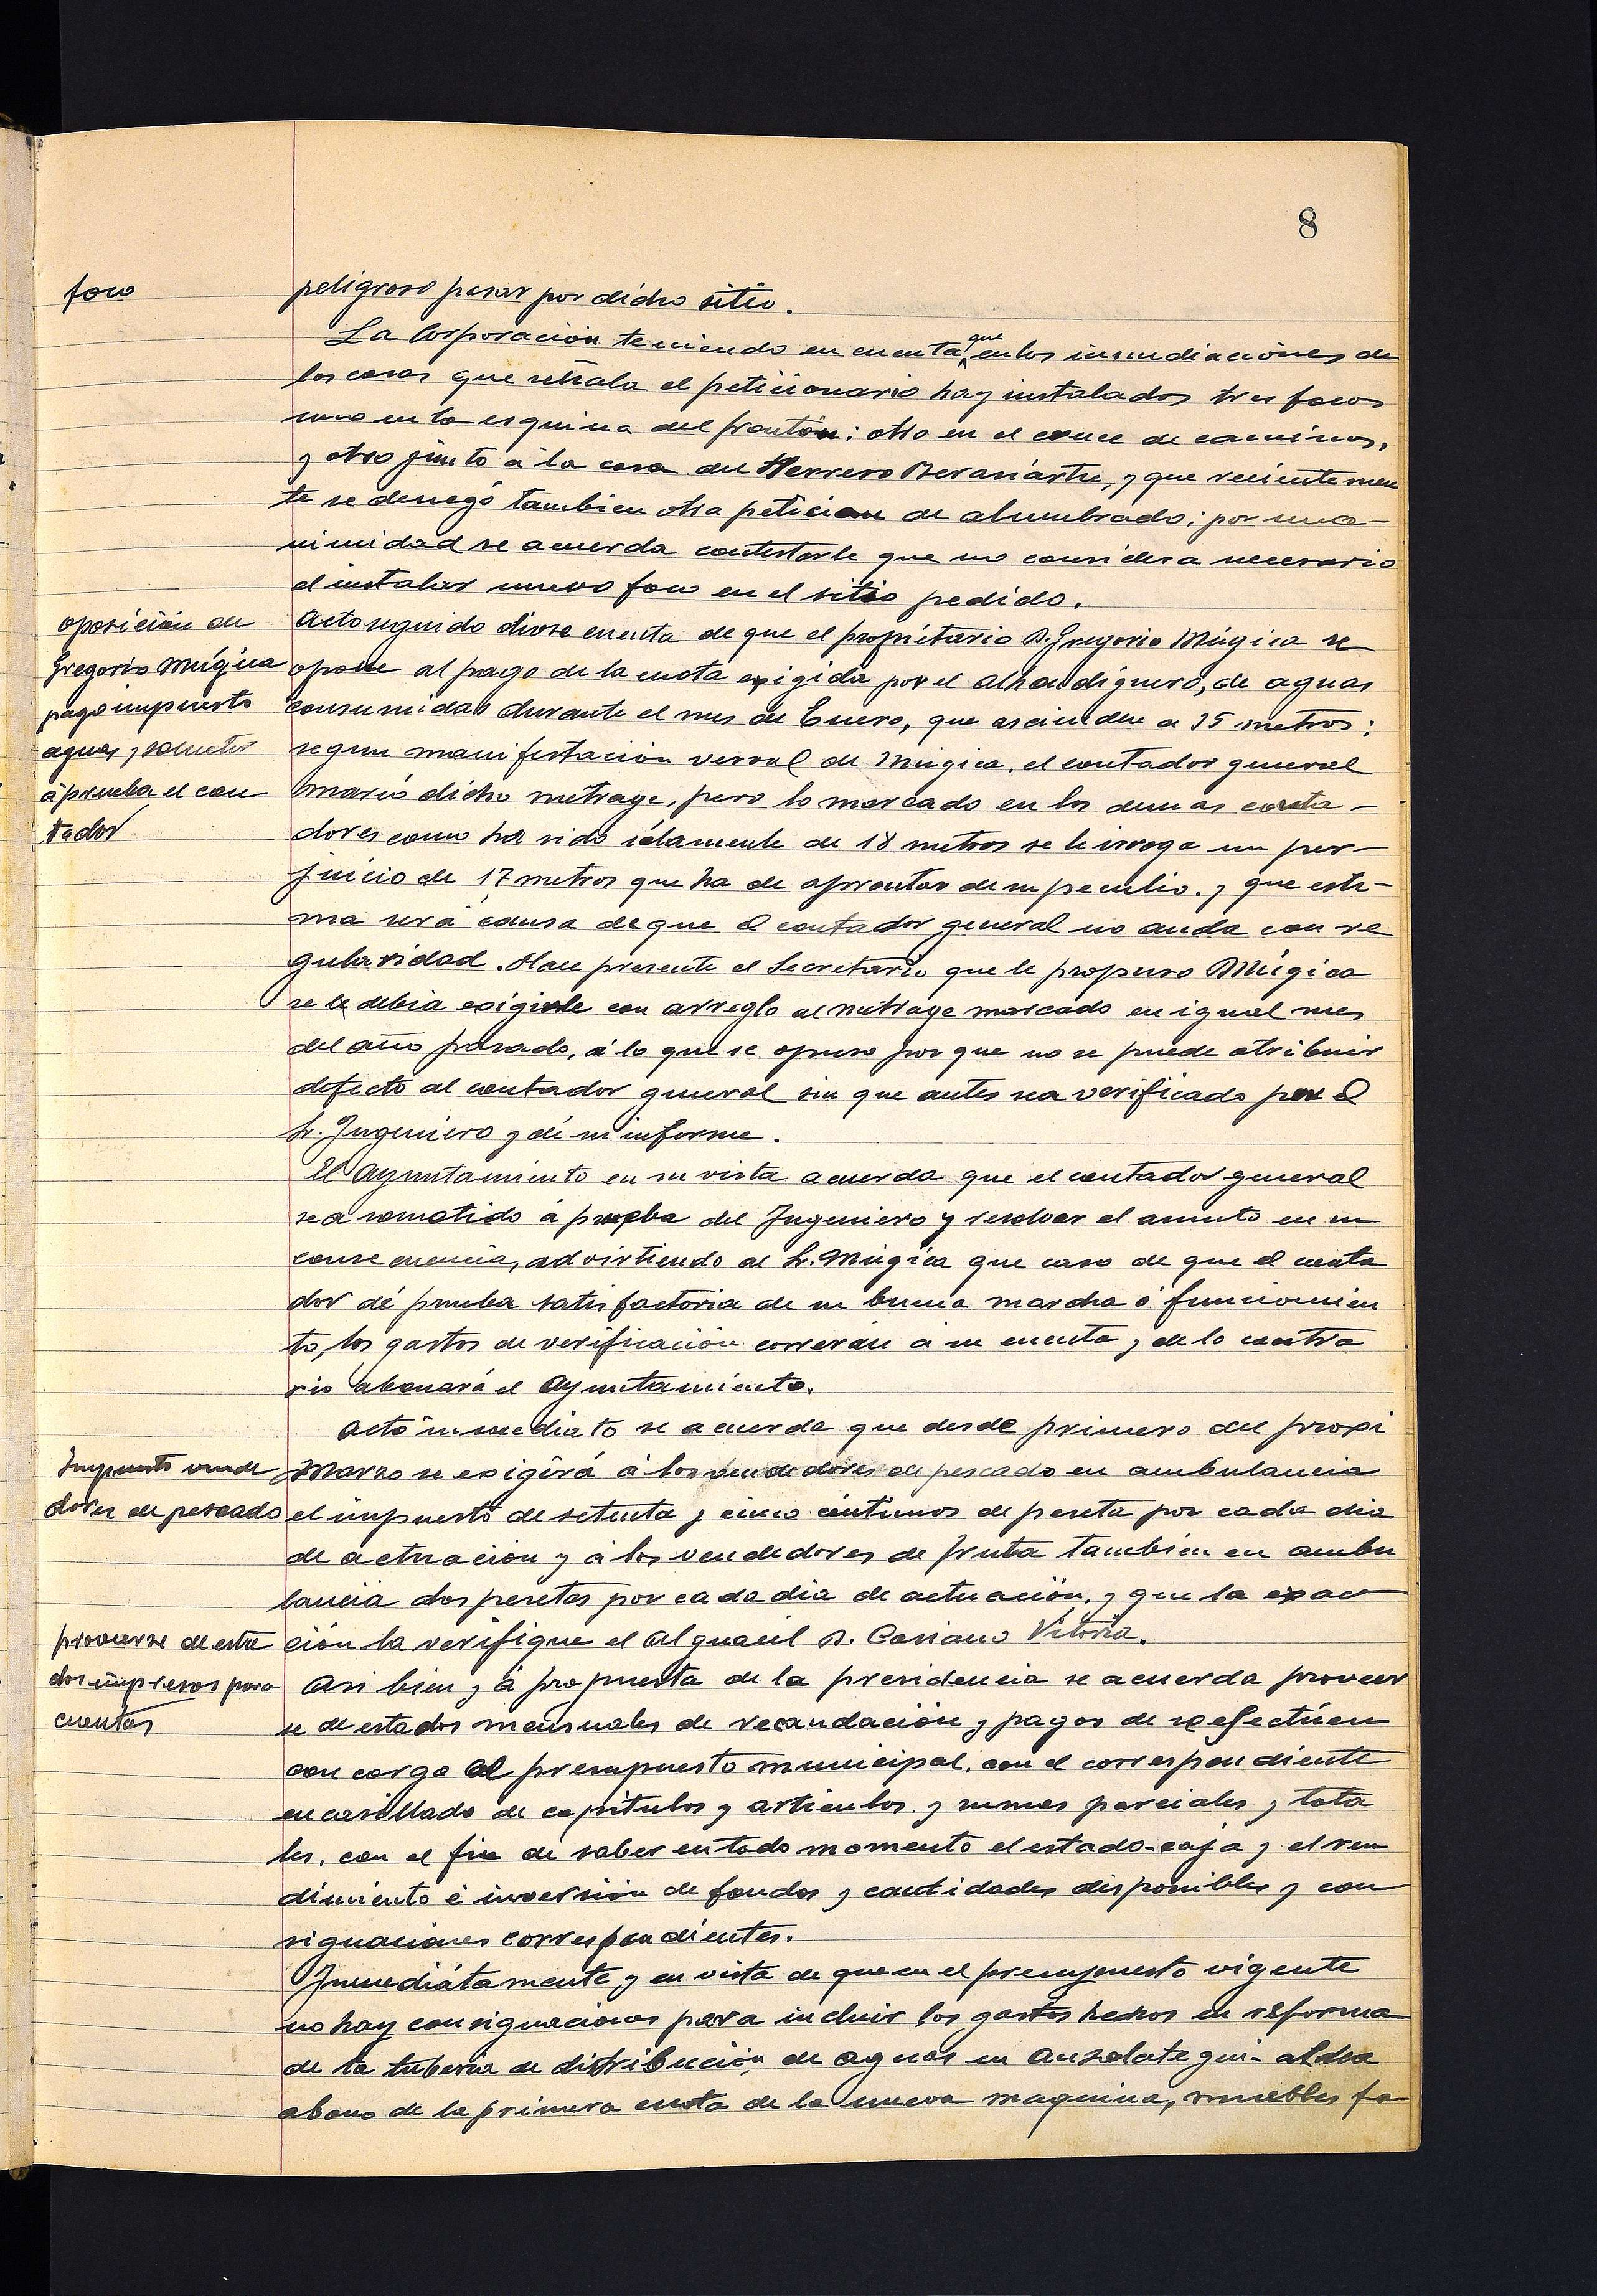 8
foco
peligroso pasar por dicho sitio.
La Corporación teniendo en cuenta que en los inmediaciones de
las casas que señala el peticionario hay instalados tres focos
uno en la esquina del frontón: otro en el cruce de caminos,
y otro junto á la casa del Herrero Berasiartu, y que recientemen
te se denegó tambien otra peticion de alumbrado; por una-
nimidad se acuerda contestarle que no considera necesario
el instalar nuevo foco en el sitio pedido.
oposición de
Gregorio Múgica
pago impuesto
aguas y someter
á prueba el con
tador
Acto seguido diose cuenta de que el propietario D. Gregorio Múgica se
opone al pago de la cuota exigida por el alhondiguero, de aguas
consumidas durante el mes de Enero, que asciende a 35 metros:
segun manifestación verval de Múgica, el contador general
marco dicho metrage, pero lo marcado en los demas conta-
dores como ha sido sólamente de 18 metros se le irroga un per-
juicio de 17 metros que ha de aprontar de su peculio, y que esti-
ma será causa de que el contador general no anda con re
gularidad. Hace presente el Secretario que le propuso Múgica
se le debia exigirle con arreglo al metrage marcado en igual mes
del año pasado, á lo que se opuso por que no se puede atribuir
defecto al contador general sin que antes sea verificado por el
Sr. Ingeniero y dé su informe.
El Ayuntamiento en su vista acuerda que el contador general
sea sometido á prueba del Ingeniero y resolver el asunto en su
consecuencia, advirtiendo al Sr. Múgica que caso de que el conta
dor dé prueba satisfactoria de su buena marcha ó funcionamien
to, los gastos de verificación correrán a su cuenta y de lo contra
rio abonará el Ayuntamiento.
Acto inmediato se acuerda que desde primero del proxi
Impuesto vende
dores de pescado
Marzo se exigirá á los vendedores de pescado en ambulancia
el impuesto de setenta y cinco céntimos de peseta por cada dia
de actuación y á los vendedores de fruta tambien en ambu
lancia dos pesetas por cada dia de actuación, y que la exac
ción la verifique el alguacil D. Casiano Vitoria.
proveerse de esta
dos impresos para
cuentas
Asi bien y á propuesta de la presidencia se acuerda proveer
se de estados mensuales de recaudación y pagos de se efectúen
con cargo al presupuesto municipal, con el correspondiente
encasillado de capitulos y articulos y sumas parciales y tota
les, con el fin de saber en todo momento el estado-caja y el ren
dimiento é inversión de fondos y cantidades disponibles y con
signaciones correspondientes.
Inmediátamente y en vista de que en el presupuesto vigente
no hay consignaciones para incluir los gastos hechos en reforma
de la tuberia de distribución de aguas en Anzolategui-aldea
abono de la primera cuota de la nueva maquina, muebles fa